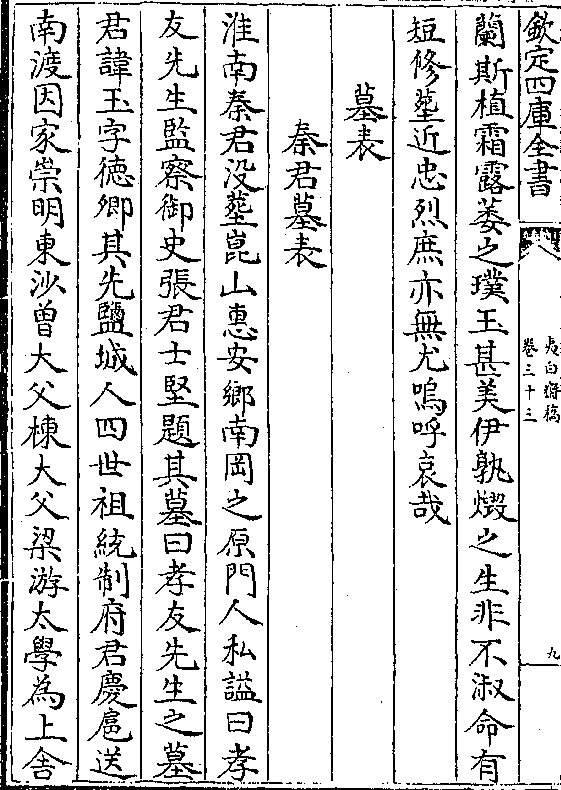 欽定四庫全書
夷白齋稿
卷三十三
九
蘭斯植霜露萎之璞玉甚美伊孰燬之生非不淑命有
短修塟近忠烈庶亦無尤嗚呼哀哉
墓表
秦君墓表
淮南秦君没塟崑山惠安鄉南岡之原門人私謚曰孝
友先生監察御史張君士堅題其墓曰孝友先生之墓
君諱玉字徳卿其先鹽城人四世祖統制府君慶扈送
南渡因家崇明東沙曾大父棟大父梁游太學為上舍